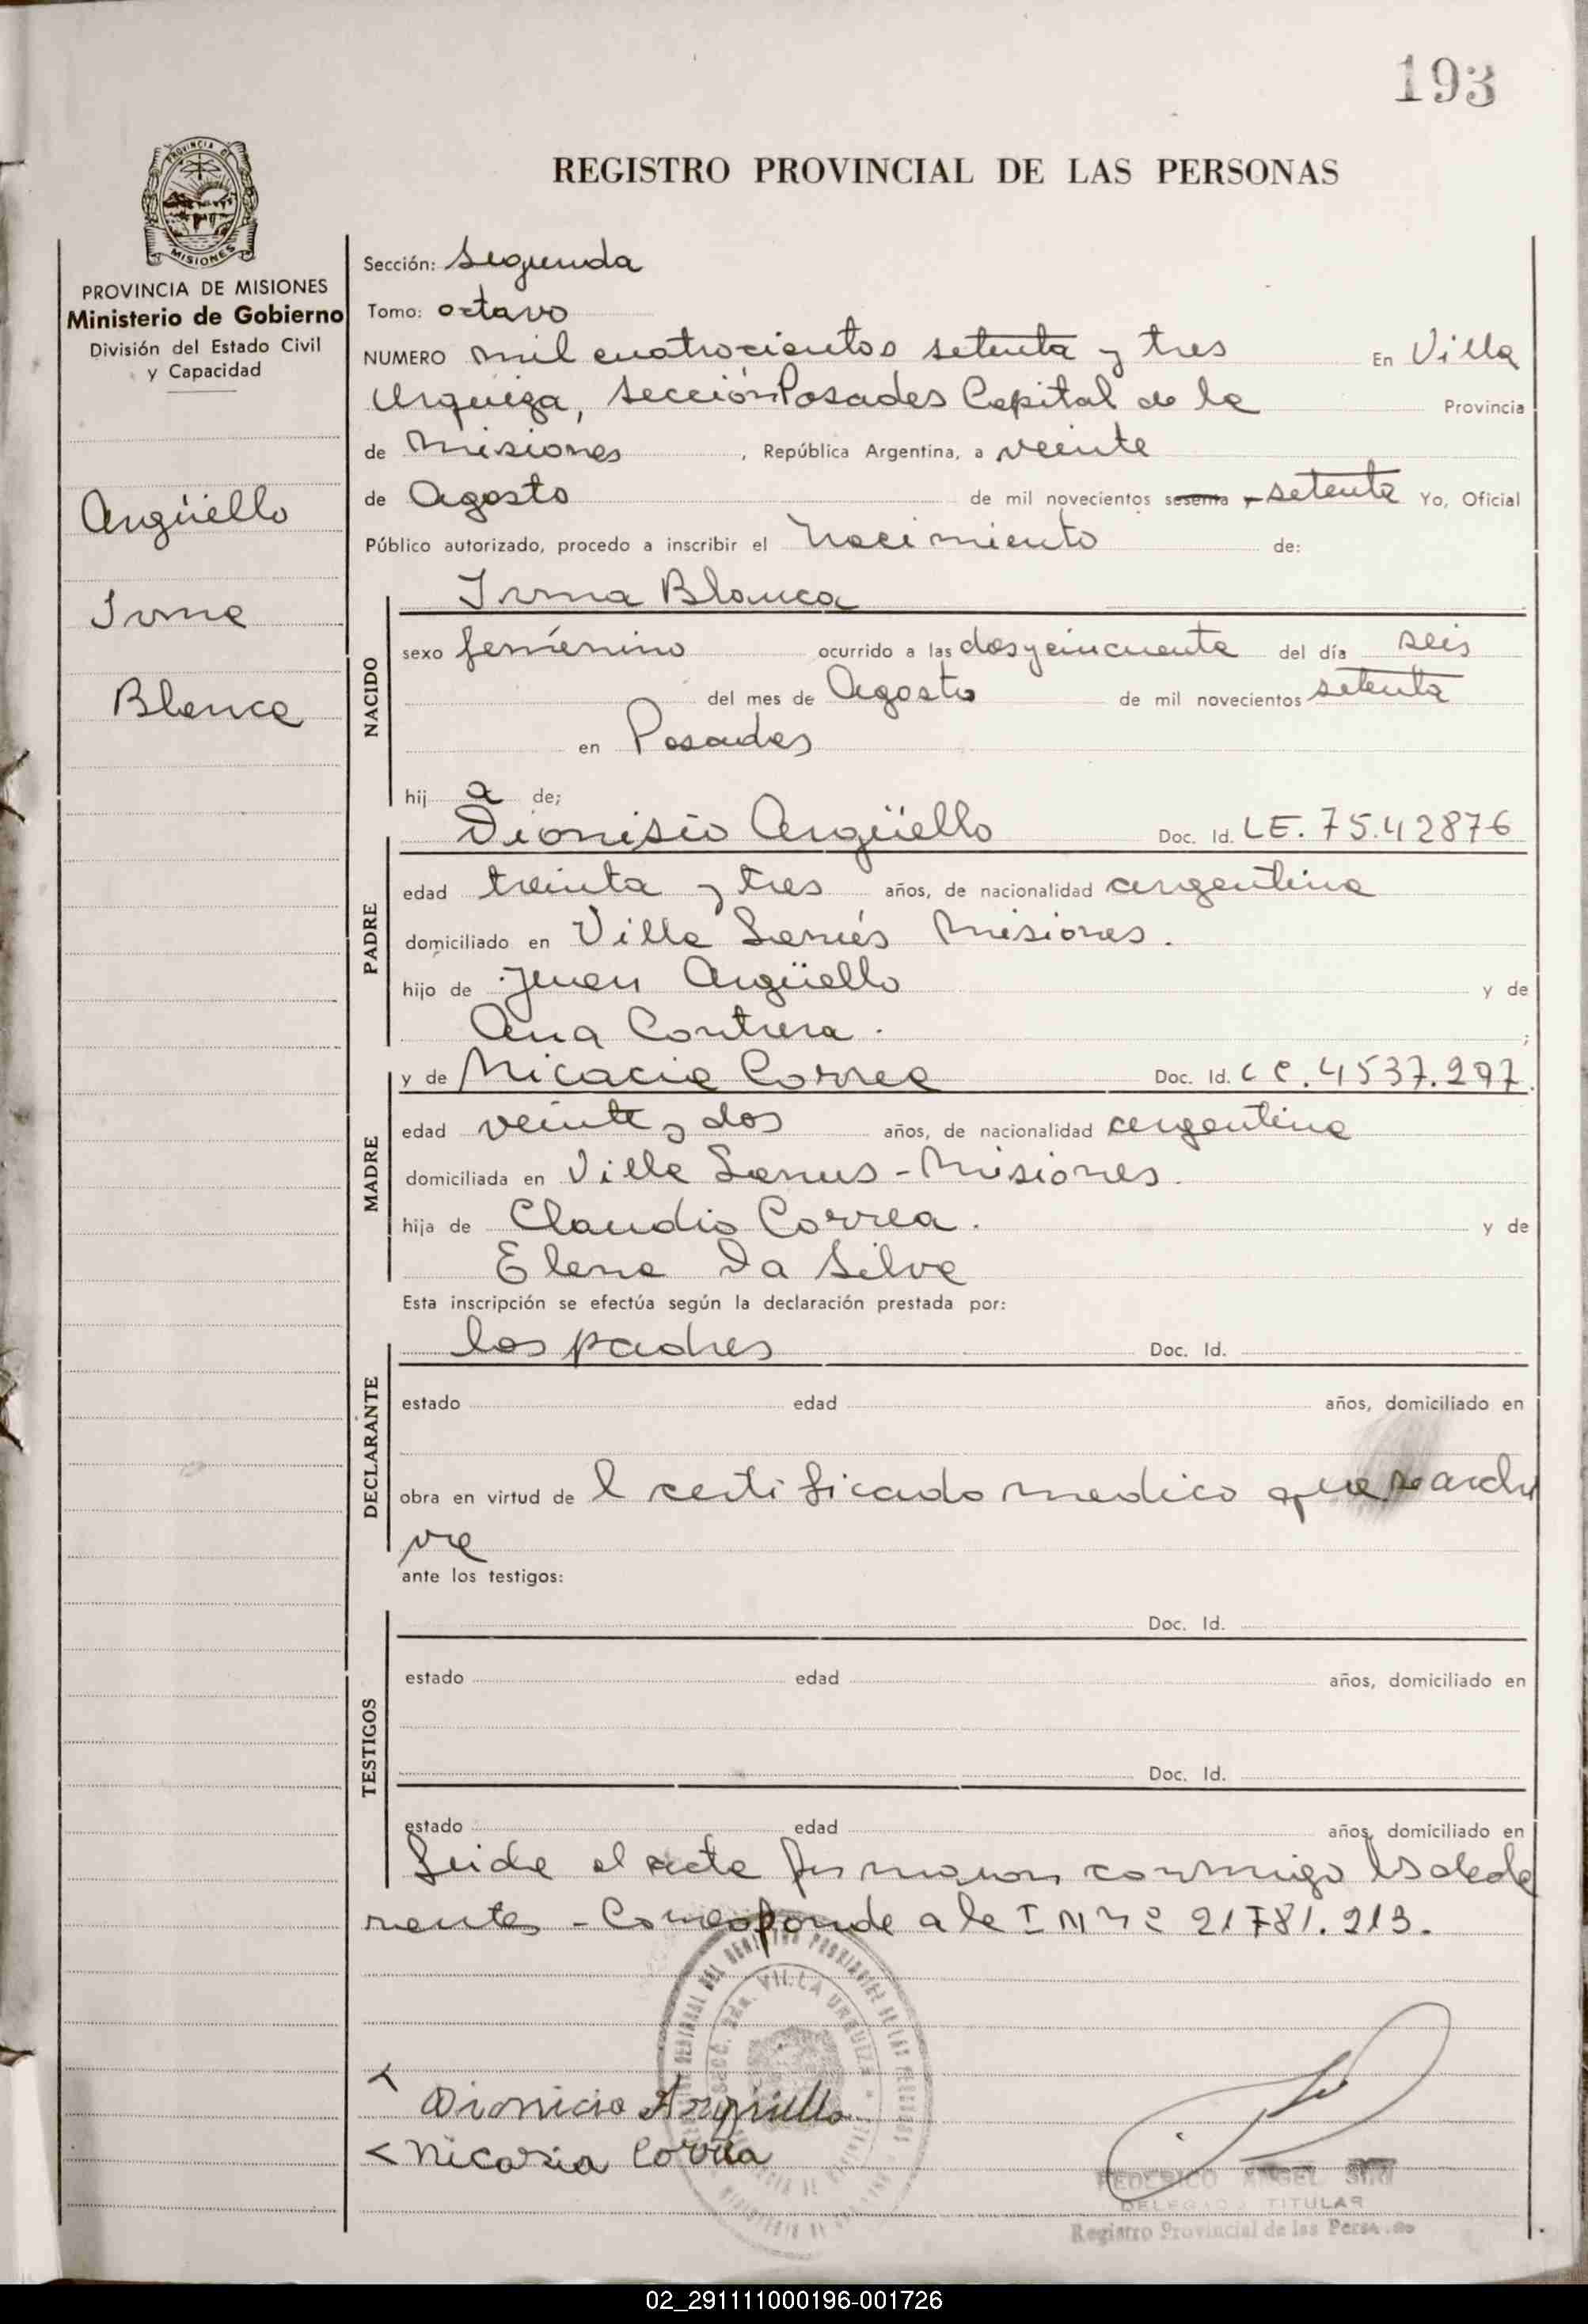 193
REGISTRO PROVINCIAL DE LAS PERSONAS
PROVINCIA DE
MISIONES
PROVINCIA DE MISIONES
Ministerio de Gobierno
División del Estado Civil
y Capacidad
Argüello
Irma
Blanca
Sección: Segunda
Tomo: octavo
NUMERO mil cuatrocientos setenta y tres En Villa
Urquiza, Sección Posadas Capital de la Provincia
de Misiones, República Argentina, a veinte
de Agosto de mil novecientos sesenta y setenta Yo, Oficial
Público autorizado, procedo a inscribir el Nacimiento de:
Irma Blanca
NACIDO
sexo femenino ocurrido a las dos y cincuenta del día seis
del mes de Agosto de mil novecientos setenta
en Posadas
hij a de;
Dionisio Argüello Doc. Id. LE. 75.42876
PADRE
edad treinta y tres años, de nacionalidad argentina
domiciliado en Villa Lanús Misiones.
hijo de Juan Argüello y de
Ana Contrera.
;
y de Nicacia Correa Doc. Id. LC. 4537.297
MADRE
edad veinte y dos años, de nacionalidad argentina
domiciliada en Villa Lanus - Misiones.
hija de Claudio Correa. y de
Elena Da Silva
Esta inscripción se efectúa según la declaración prestada por:
los padres Doc. Id.
DECLARANTE
estado edad años, domiciliado en
obra en virtud de l certificado medico que se archi
va
ante los testigos:
Doc. Id.
TESTIGOS
estado edad años, domiciliado en
Doc. Id.
estado edad años, domiciliado en
Leida el acta firmaron conmigo los decla
rantes - Corresponde a la I M Nº 21781.213.
VILLA URQUIZA
Dionicio Arguello
Nicasia Correa
FEDERICO ANGEL
DELEGADO TITULAR
Registro Provincial de las Personas
02_291111000196-001726